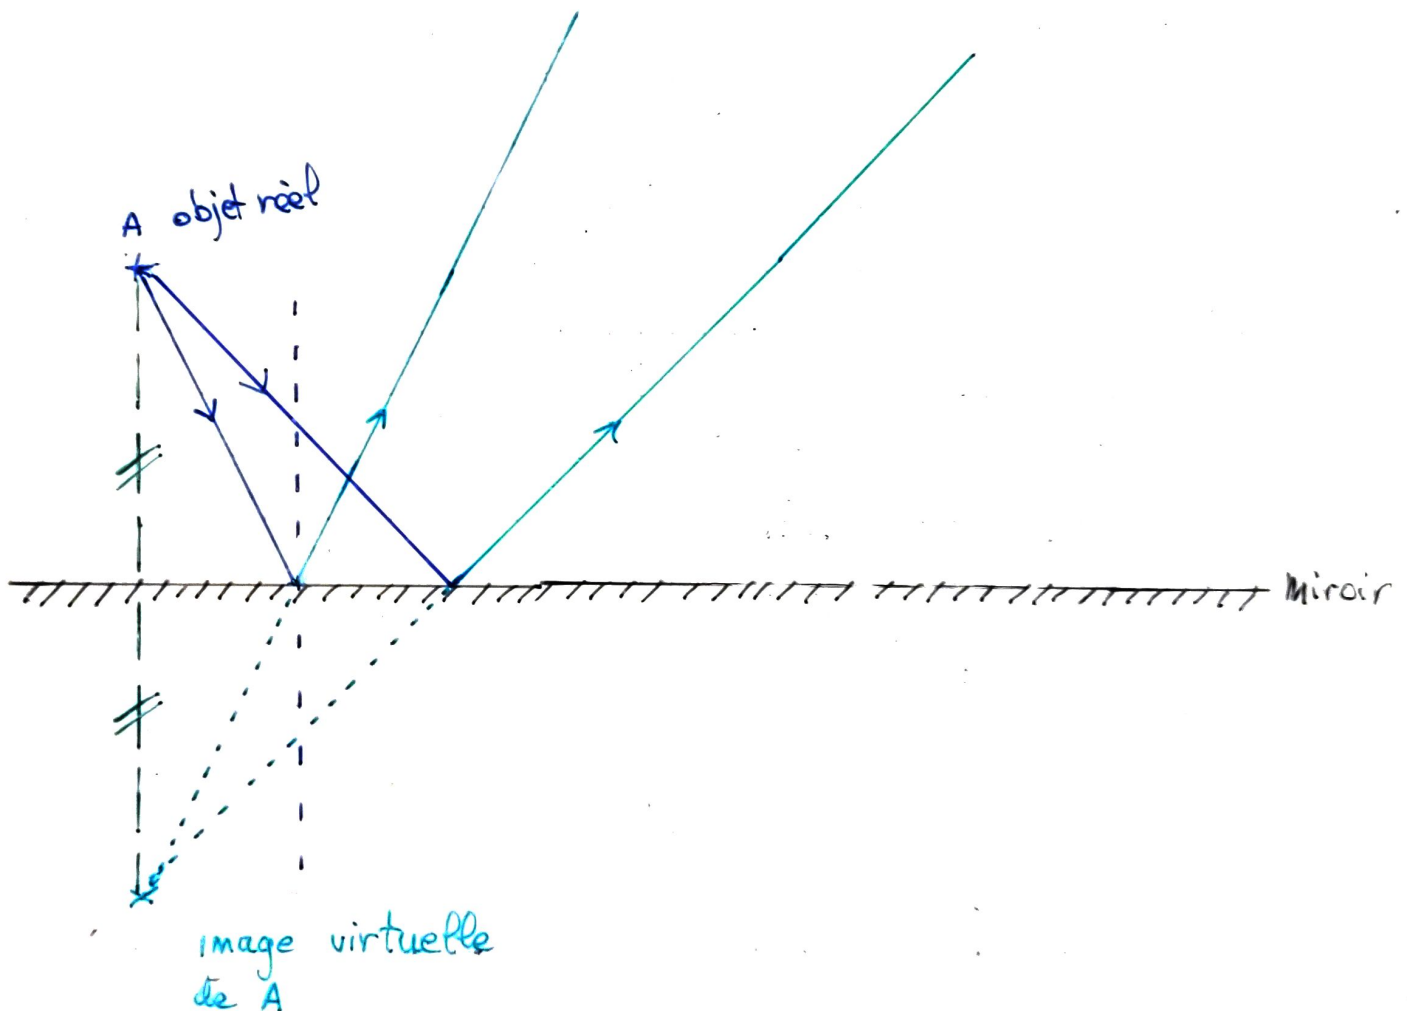 A objet réel
Miroir
image virtuelle
de A